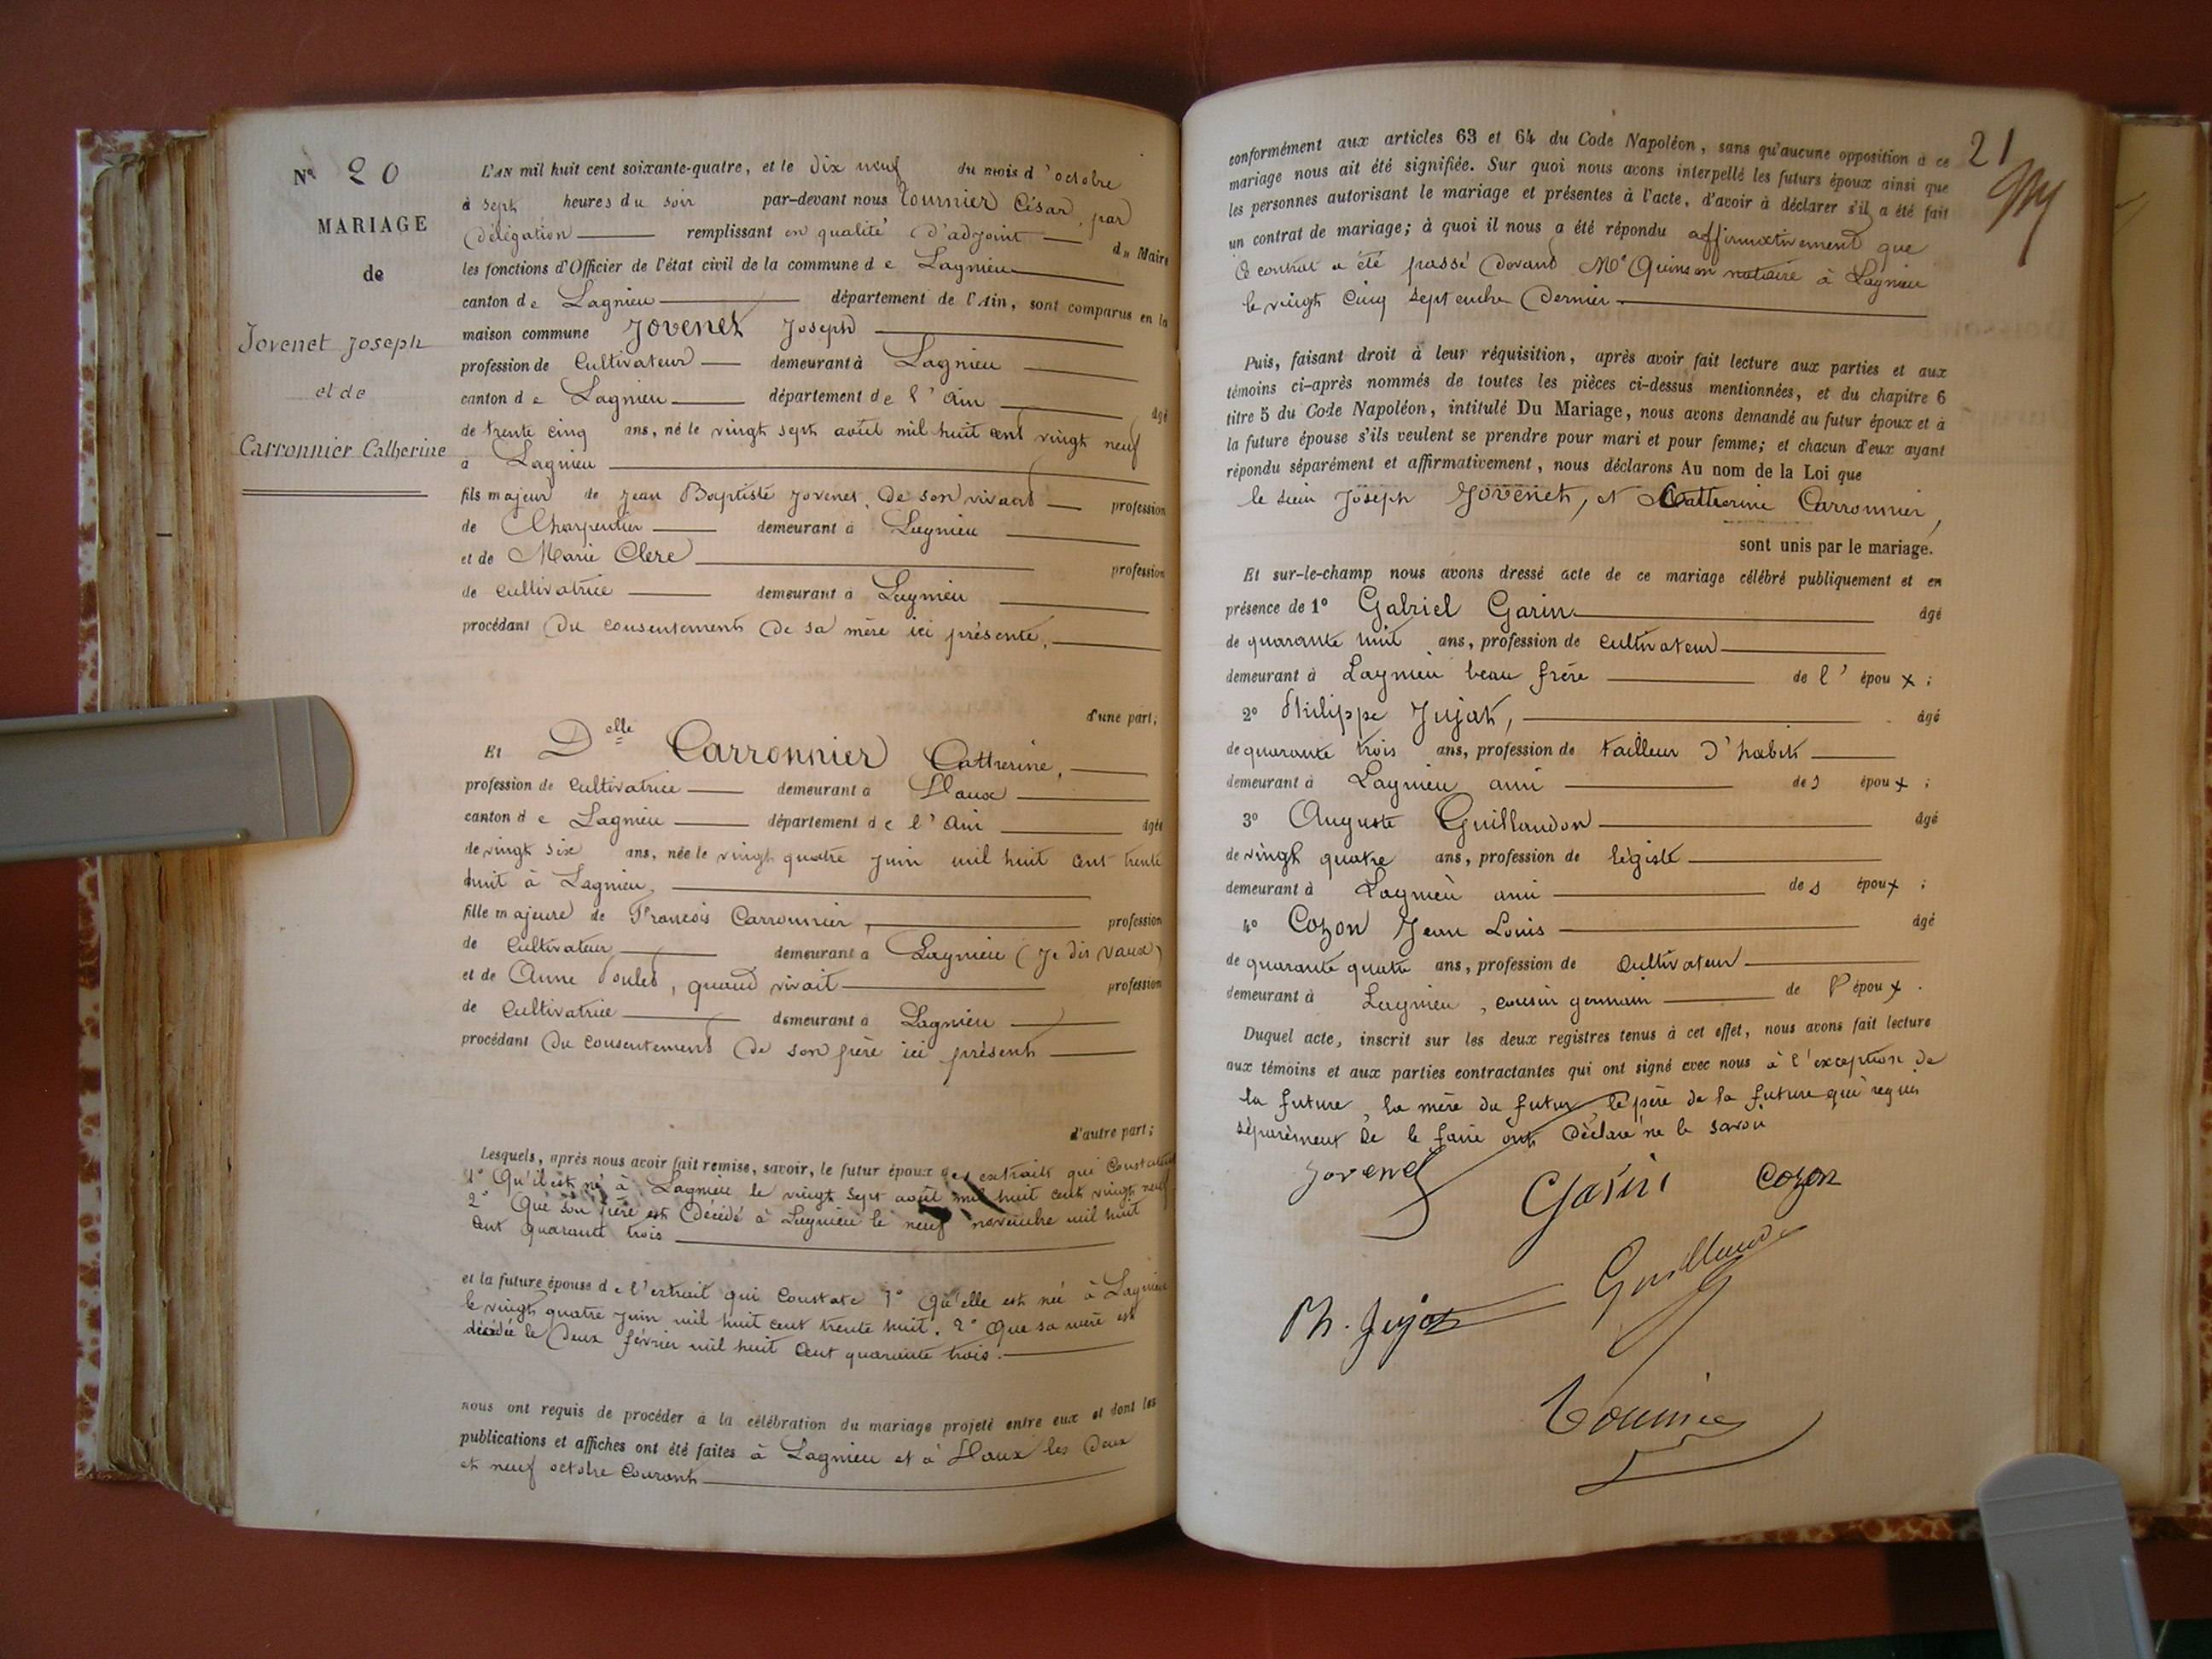 N° 20
MARIAGE
de
Jovenet Joseph
et de
Carronnier Catherine
L'AN mil huit cent soixante-quatre, et le dix neuf du mois d'octobre
à sept heures du soir par-devant nous Tournier César, par
délégation remplissant en qualité d'adjoint du Maire
les fonctions d'Officier de l'état civil de la commune de Lagnieu
canton de Lagnieu département de l'Ain, sont comparus en la
maison commune Jovenet Joseph
profession de Cultivateur demeurant à Lagnieu
canton de Lagnieu département de l'Ain âgé
de trente cinq ans, né le vingt sept août mil huit cent vingt neuf
à Lagnieu
fils majeur de Jean Baptiste Jovenet, de son vivant profession
de Charpentier demeurant à Lagnieu
et de Marie Clere profession
de cultivatrice demeurant à Lagnieu
procédant du consentement de sa mère ici présente,
d'une part;
Et Delle Carronnier Cattherine,
profession de Cultivatrice demeurant à Vaux
canton de Lagnieu département de l'Ain âgée
de vingt six ans, née le vingt quatre juin mil huit cent trente
huit à Lagnieu,
fille majeure de François Carronnier, profession
de Cultivateur demeurant à Lagnieu (je dis Vaux)
et de Anne , quand vivait profession
de Cultivatrice demeurant à Lagnieu
procédant du consentement de son père ici présent
d'autre part;
Lesquels, après nous avoir fait remise, savoir, le futur époux des extraits qui constatent
1° Qu'il est né à Lagnieu le vingt sept août mil huit cent vingt neuf
2° Que son père est décédé à Lagnieu le neuf novembre mil huit
cent quarante trois
et la future épouse de l'extrait qui constate 1° Qu'elle est née à Lagnieu
le vingt quatre juin mil huit cent trente huit. 2° Que sa mère est
décédée le deux février mil huit cent quarante trois.
nous ont requis de procéder à la célébration du mariage projeté entre eux et dont les
publications et affiches ont été faites à Lagnieu et à Vaux les deux
et neuf octobre courant
21
conformément aux articles 63 et 64 du Code Napoléon, sans qu'aucune opposition à ce
mariage nous ait été signifiée. Sur quoi nous avons interpellé les futurs époux ainsi que
les personnes autorisant le mariage et présentes à l'acte, d'avoir à déclarer s'il a été fait
un contrat de mariage; à quoi il nous a été répondu affirmativement que
ce contrat a été passé devant Me Quinson notaire à Lagnieu
le vingt cinq septembre dernier
Puis, faisant droit à leur réquisition, après avoir fait lecture aux parties et aux
témoins ci-après nommés de toutes les pièces ci-dessus mentionnées, et du chapitre 6
titre 5 du Code Napoléon, intitulé Du Mariage, nous avons demandé au futur époux et à
la future épouse s'ils veulent se prendre pour mari et pour femme; et chacun d'eux ayant
répondu séparément et affirmativement, nous déclarons Au nom de la Loi que
le sieur Joseph Jovenet, et Cattherine Carronnier,
sont unis par le mariage.
Et sur-le-champ nous avons dressé acte de ce mariage célébré publiquement et en
présence de 1° Gabriel Garin âgé
de quarante huit ans, profession de cultivateur
demeurant à Lagnieu beau frère de l'époux;
2° Philippe Jujat, âgé
de quarante trois ans, profession de tailleur d'habit
demeurant à Lagnieu ami des époux;
3° Auguste Guillaudon âgé
de vingt quatre ans, profession de légiste
demeurant à Lagnieu ami des époux;
4° Cozon Jean Louis âgé
de quarante quatre ans, profession de cultivateur
demeurant à Lagnieu, cousin germain de l'époux.
Duquel acte, inscrit sur les deux registres tenus à cet effet, nous avons fait lecture
aux témoins et aux parties contractantes qui ont signé avec nous à l'exception de
la future, la mère du futur, le père de la future qui requis
séparément de le faire ont déclaré ne le savoir
Jovenet Garin Cozon
Ph. Jujat Guillaudon
Tournier